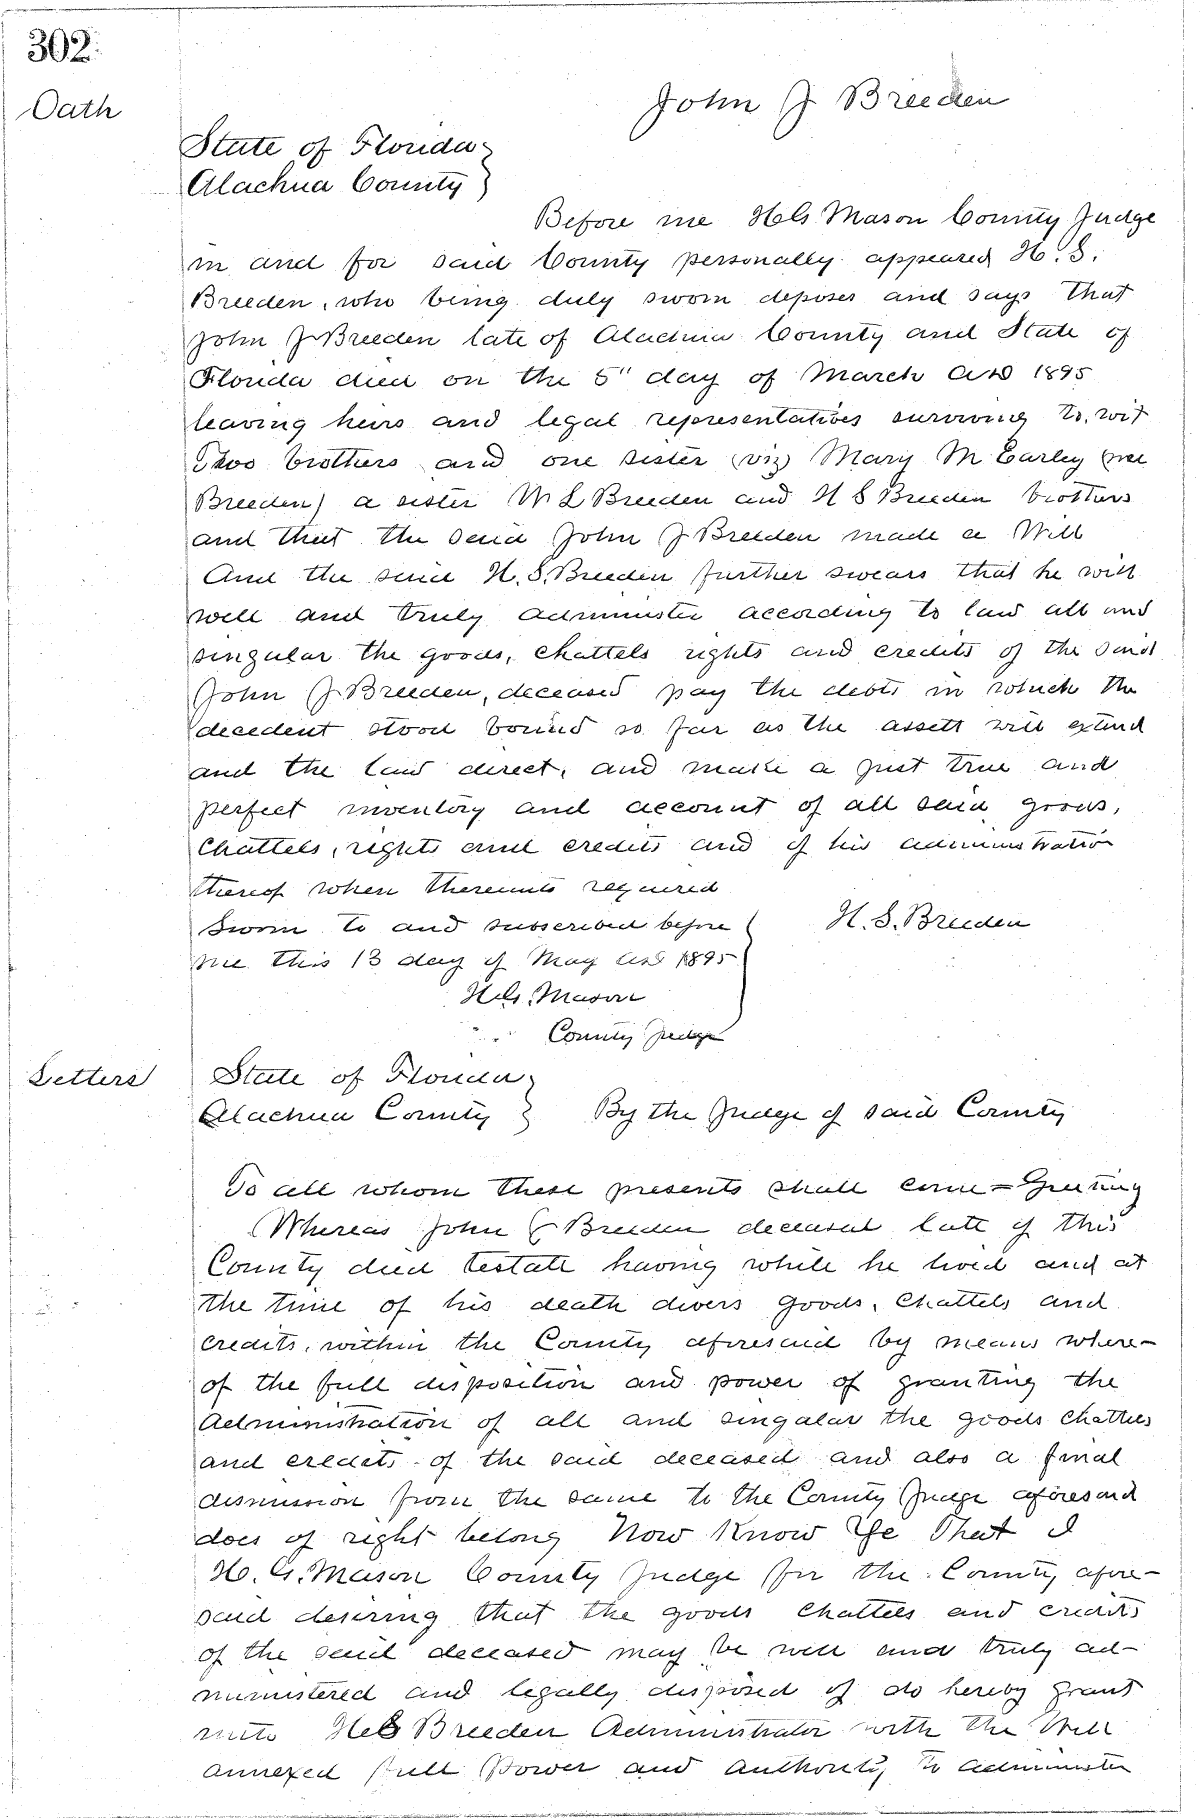 302
Oath
John J Breeden
State of Florida }
Alachua County }
Before me H G Mason County Judge
in and for said County personally appeared H. S.
Breeden, who being duly sworn deposes and says that
John J Breeden late of Alachua County and State of
Florida died on the 5" day of March AD 1895
leaving heirs and legal representatives surviving to. wit
Two brothers and one sister (viz) Mary M Earley (nee
Breeden) a sister W L Breeden and H S Breeden brothers
and that the said John J Breeden made a Will
And the said H. S. Breeden further swears that he will
well and truly administer according to law all and
singular the goods, chattels rights and credits of the said
John J Breeden, deceased pay the debts in which the
decedent stood bound so far as the assett will extend
and the law direct, and make a just true and
perfect inventory and account of all said goods,
Chattels, rights and credits and of his administration
thereof when thereunto required
Sworn to and subscribed before } H. S. Breeden
me this 13 day of May AD 1895
H. G. Mason
County Judge
Letters
State of Florida }
Alachua County } By the Judge of said County
To all whom these presents shall come = Greeting
Whereas John J Breeden deceased late of this
County died testate having while he lived and at
the time of his death divers goods, Chattels and
credits, within the County aforesaid by means where-
of the full disposition and power of granting the
Administration of all and singular the goods chattels
and credits of the said deceased and also a final
dismission from the same to the County Judge aforesaid
does of right belong Now Know Ye That I
H. G. Mason County Judge for the County afore-
said desiring that the goods Chattels and credits
of the said deceased may be well and truly ad-
ministered and legally disposed of do hereby grant
unto H S Breeden Administrator with the Will
annexed full Power and authority to administer